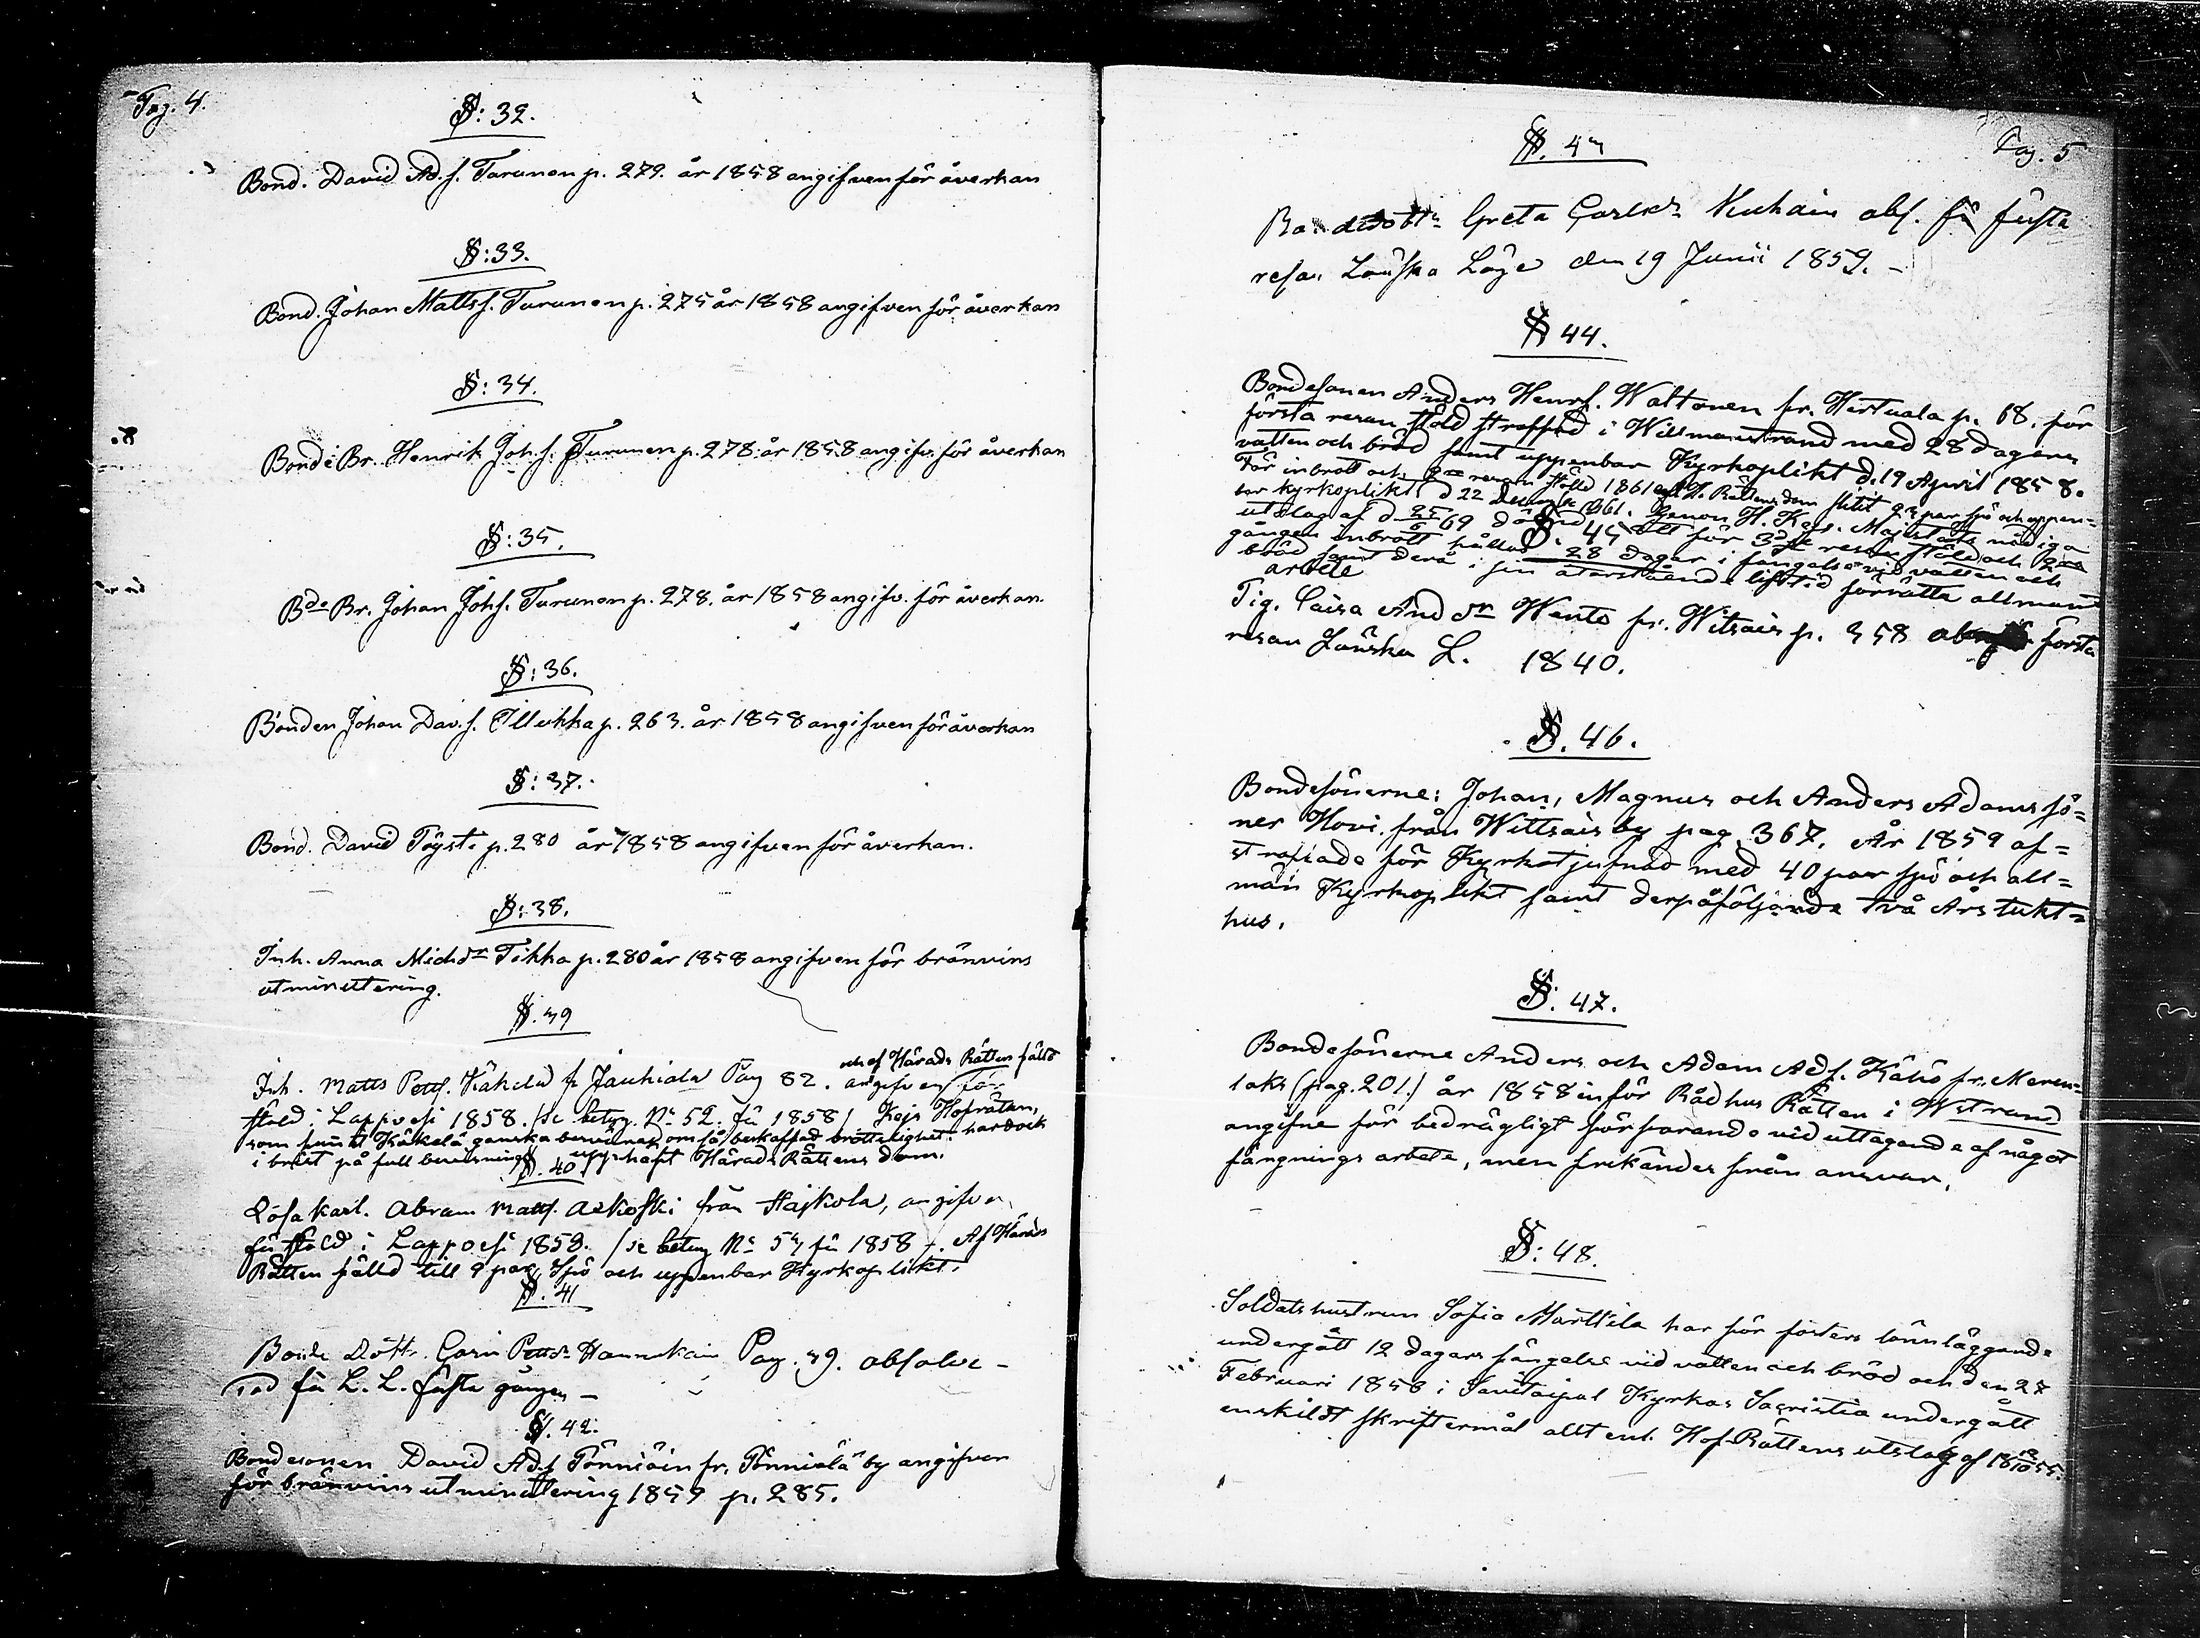 Pag. 4.
§: 32.
Bond. David Ad.s. Turunen p. 279. år 1858 angifven för åverkan
§: 33.
Bond. Johan Matts s. Turunen p. 275 år 1858 angifven för åverkan
§: 34.
Bonde Br. Henrik Joh.s. Turunen p. 278 år 1858 angifv. för åverkan
§: 35.
Bde Br. Johan Johs. Turunen p. 278. år 1858 angifv. för åverkan.
§: 36.
Bonden Johan Dav.s. Illukka p. 263. år 1858 angifven för åverkan
§: 37.
Bond. David Pöysti p. 280 år 1858 angifven för åverkan.
§: 38.
Inh. Anna Michdr Tikka p. 280 år 1858 angifven för bränvins
utminutering.
§. 39
och af Härads Rätten fälld
Inh. Matts Petts. Käkelä fr Jauhiala Pag 82. angifven för
stöld i Lappvesi 1858. /se betyg. No 52. för 1858/ Kejs Hofrätten,
som funnit Käkelä ganska besvärad om så beskaffad brottslighet, har dock
i brist på full bevisning upphäft Härads Rättens dom.
§. 40
Lösa karl. Abram Matts. Askoski från Hajkola, angifven
för stöld i Lappvesi 1858. /se betyg No 53 för 1858/. Af Härads
Rätten fälld till 9 par Spö och uppenbar Kyrkoplikt.
§. 41
Bonde Dottr. Carin Pettsdr Hannukain Pag. 39. absolve-
rad för L. L. första gången -
§. 42.
Bondesonen David Ads Tönniäin fr. Pönniälä by angifven
för bränvins utminutering 1859 p. 285.
Pag. 5
§. 43
Bondedottr Greta Carlsdr Kuhain abs. för första
resan Lönska Läge den 19 Junii 1859. -
§ 44.
Bondesonen Anders Henrs. Waltonen fr. Wirtuala p. 68. för
första resan stöld straffad i Willmanstrand med 28 dagars
vatten och bröd samt uppenbar Kyrkoplikt d. 19 April 1858.
För inbrott och 2a resan stöld 1861 enl. H. Rättens dom slitit 23 par spö och uppen-
bar kyrkoplikt d 22 1861. Genom H. Kejs. Majestäts nådiga
utslag af d 25/6 69 dömd att för 3dje resan stöld och 2dra
§. 45
gången inbrott hållas 28 dagar i fängelse vid vatten och
bröd samt derå i sin återstående lifstid förrätta allmänt
arbete
Pig. Caisa And dr Wento fr. Witsais p. 358 abs för första
resan Lönska L. 1840.
§. 46.
Bondesönerne: Johan, Magnus och Anders Adams sö=
ner Hovi från Wittsais by pag. 367. År 1859 af=
straffade för Kyrkotjufnad med 40 par spö och all=
män Kyrkoplikt samt derpåföljande två års tukt=
hus.
§. 47.
Bondesönerne Anders och Adam Ads. Kähö fr. Meren=
laks (pag. 201.) år 1858 inför Rådhus Rätten i Wstrand
angifne för bedrägligt förfarande vid uttagande af något
fångnings arbete, men frikändes från ansvar.
§: 48.
Soldats hustrun Sofia Marttila har för fosters lönnläggande
undergått 12 dagars fängelse vid vatten och bröd och den 27
Februari 1856 i Savitaipal Kyrkas Sacristia undergått
enskildt skriftermål allt enl. Hof-Rättens utslag af 18 12/10 55.